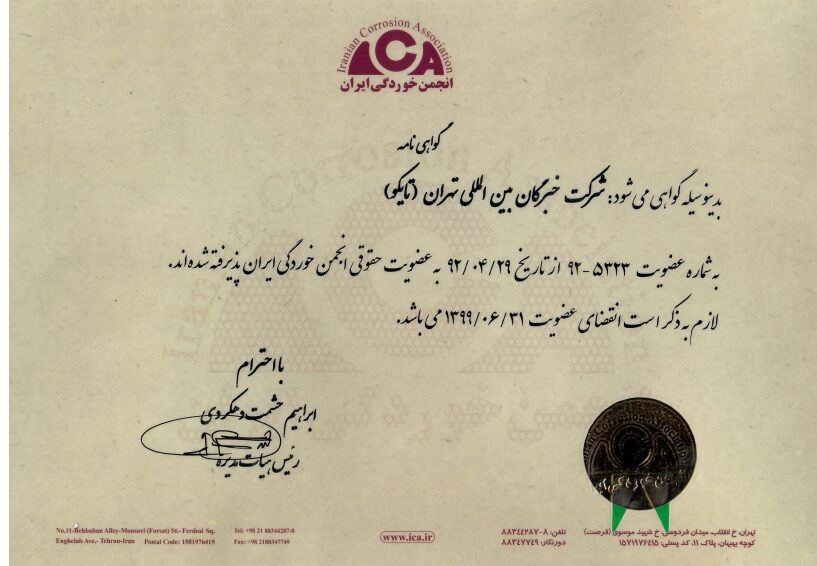 Iranian Corrosion Association
ICA
انجمن خوردگی ایران
گواهی نامه
بدینوسیله گواهی می شود: شرکت خبرگان بین المللی تهران (تایکو)
به شماره عضویت ۵۳۲۳-۹۲ از تاریخ ۹۲/۰۴/۲۹ به عضویت حقوقی انجمن خوردگی ایران پذیرفته شده‌اند.
لازم به ذکر است انقضای عضویت ۱۳۹۹/۰۶/۳۱ می باشد.
با احترام
ابراهیم حشمت دهکردی
رئیس هیات مدیره
No.11-Behbahan Alley-Mousavi (Forsat) St.- Ferdosi Sq.
Enghelab Ave.- Tehran-Iran Postal Code: 1581976415
Tel: +98 21 88344287-8
Fax: +98 2188347749
www.ica.ir
تلفن: ۸-۸۸۳۴۴۲۸۷
دورنگار: ۸۸۳۴۷۷۴۹
تهران، خ انقلاب، میدان فردوسی، خ شهید موسوی (فرصت)
کوچه بهبهان، پلاک ۱۱، کد پستی: ۱۵۷۱۹۷۶۴۱۵